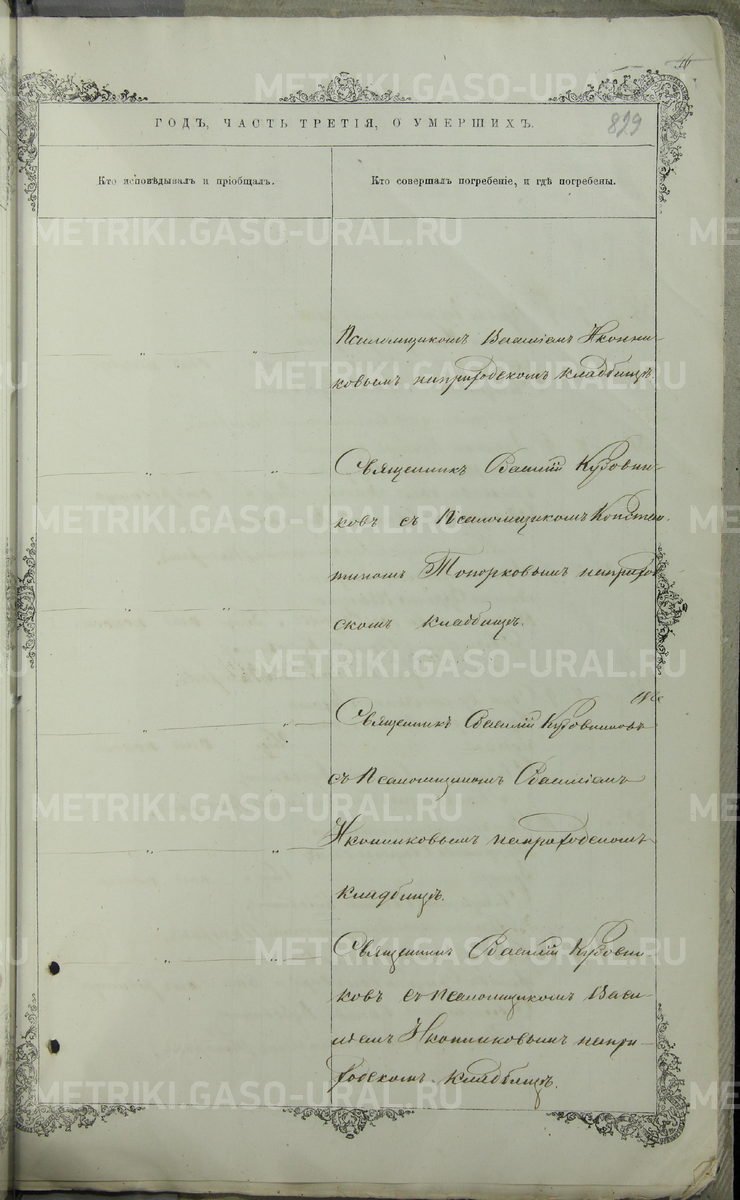 899
ГОДЪ, ЧАСТЬ ТРЕТІЯ, О УМЕРШИХЪ.
Кто исповѣдывалъ и пріобщалъ.
Кто совершалъ погребеніе, и гдѣ погребены.
Псаломщикомъ Василіемъ Иконни-
ковымъ наприходскомъ кладбищѣ.
Священникъ Василій Кудовни-
ковъ съ Псаломщикомъ Констан-
тиномъ Топорковымъ наприход-
скомъ кладбищѣ.
Священникъ Василій Кудовниковъ
съ Псаломщикомъ Василіемъ
Иконниковымъ наприходскомъ
кладбищѣ.
Священникъ Василій Кудовни-
ковъ съ Псаломщикомъ Васи-
ліемъ Иконниковымъ напри-
ходскомъ кладбищѣ.
METRIKI.GASO-URAL.RU